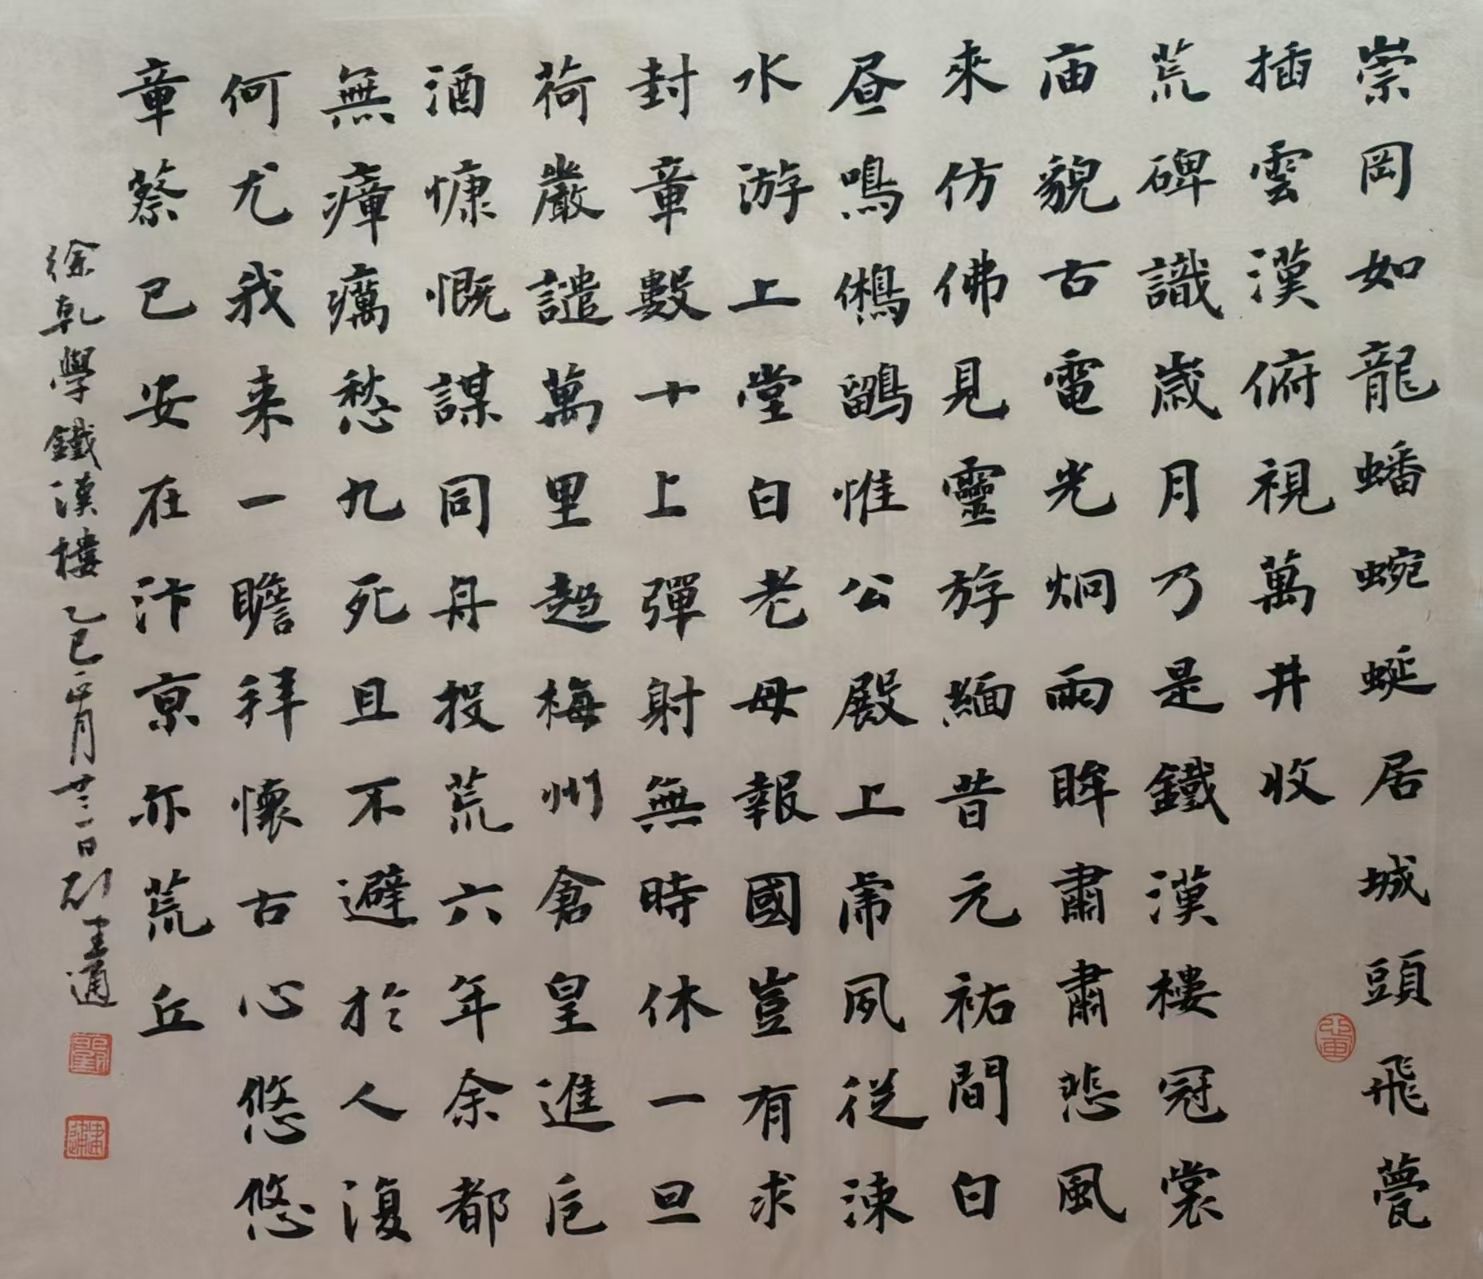 崇岡如龍蟠蜿蜒居城頭飛甍
插雲漢俯視萬井收
荒碑識歲月乃是鐵漢樓冠裳
庙貌古電光炯兩眸肅肅悲風
來仿佛見靈斿緬昔元祐間白
昼鳴鵂鶹惟公殿上虎夙從涑
水游上堂白老母報國豈有求
封章數十上彈射無時休一旦
荷嚴譴萬里趍梅州倉皇進卮
酒慷慨謀同舟投荒六年余都
無瘴癘愁九死且不避於人復
何尤我来一瞻拜懷古心悠悠
章蔡已安在汴京亦荒丘
徐乾學鐵漢樓乙巳正月